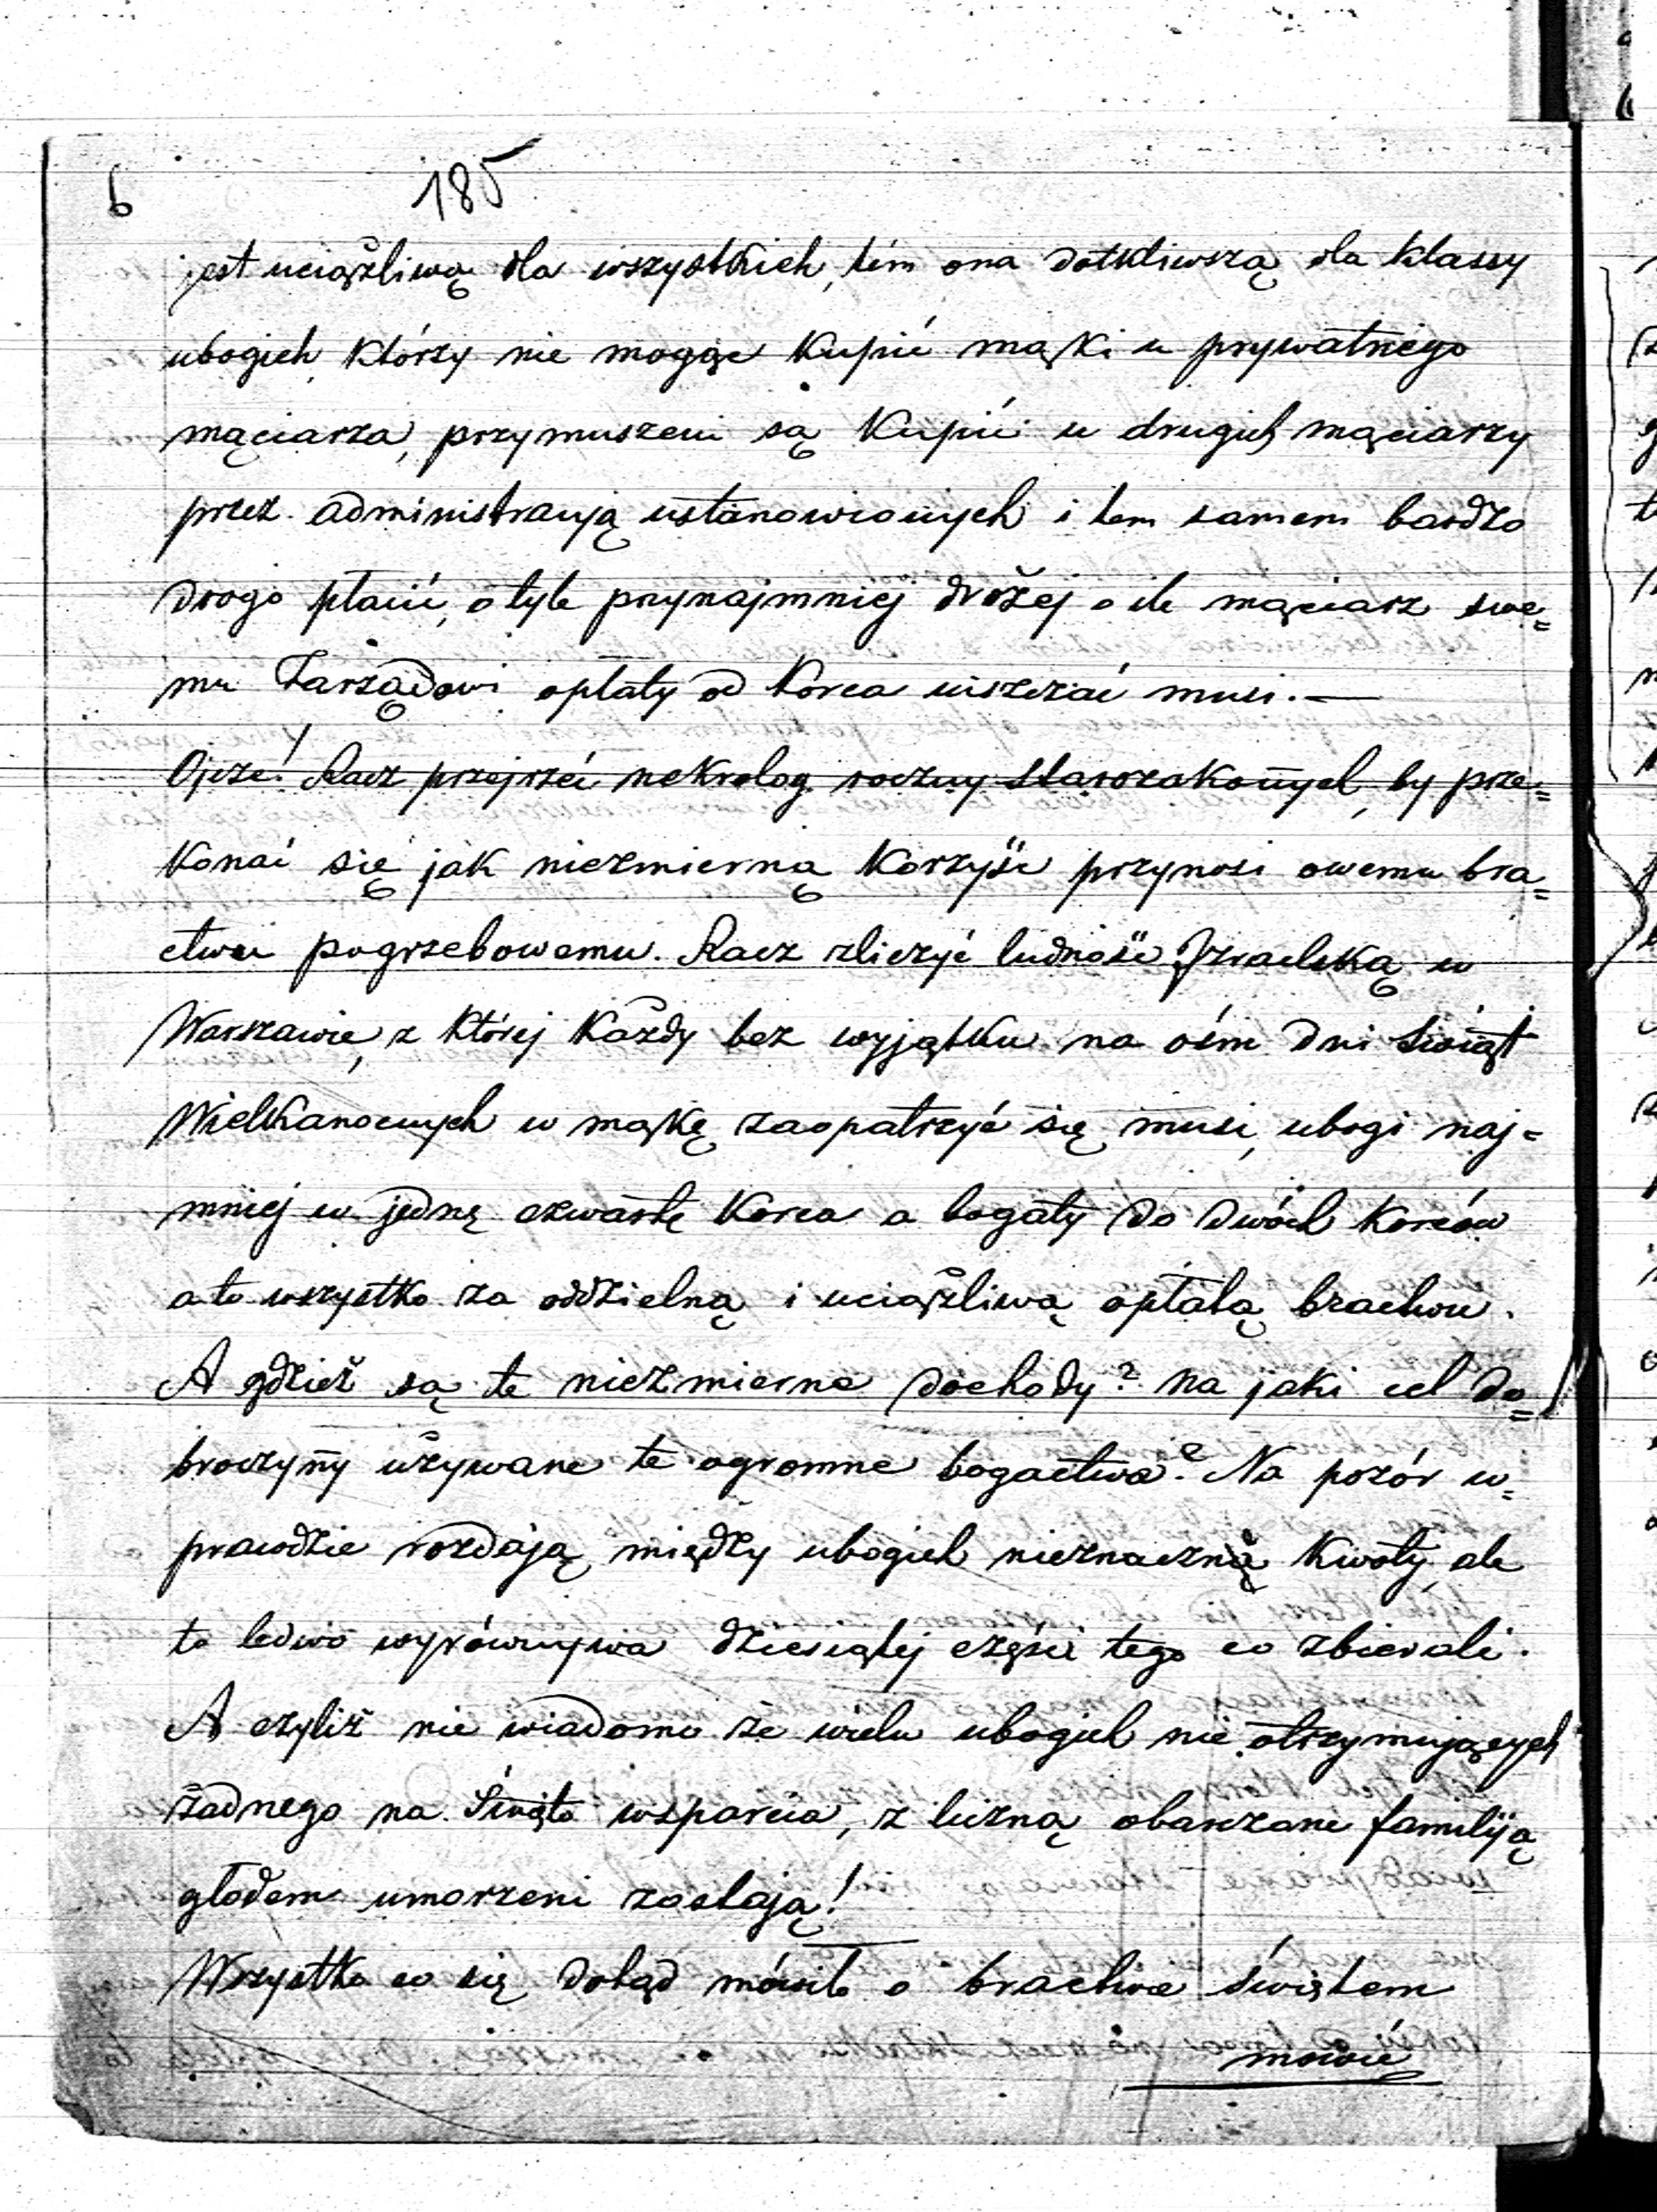 6 185
jest uciążliwą dla wszystkich, tém ona dotkliwszą dla klassy
ubogich, którzy nie mogąc kupić mąki u prywatnego
mąciarza, przymuszeni są kupić u drugich mąciarzy
przez administracyą ustanowionych i tem samem bardzo
drogo płacić, o tyle przynajmniej drożej o ile mąciarz swe=
mu Zarządowi opłaty od korca uiszczać musi. —
Ojcze! Racz przejrzéć nekrolog roczny starozakonnych, by prze=
konać się jak niezmierną korzyść przynosi owemu bra=
ctwu pogrzebowemu. Racz zliczyć ludność Izraelską w
Warszawie, z której każdy bez wyjątku na ośm dni świąt
Wielkanocnych w mąkę zaopatrzyć się musi, ubogi naj=
mniej w jednę czwartę korca a bogaty do dwóch korców
a to wszystko za oddzielną i uciążliwą opłatą bractwu.
A gdzież są te niezmierne dochody? na jaki cel do=
broczynny używane te ogromne bogactwa? Na pozór w=
prawdzie rozdają między ubogich nieznaczną kwoty, ale
to ledwo wyrównywa dziesiątej części tego co zbierali.
A czyliż nie wiadomo że wielu ubogich nie otrzymujących
żadnego na Święta wsparcia, z liczną obarczeni familiją
głodem umorzeni zostają!
Wszystko co się dotąd mówiło o bractwie świętem
mówić